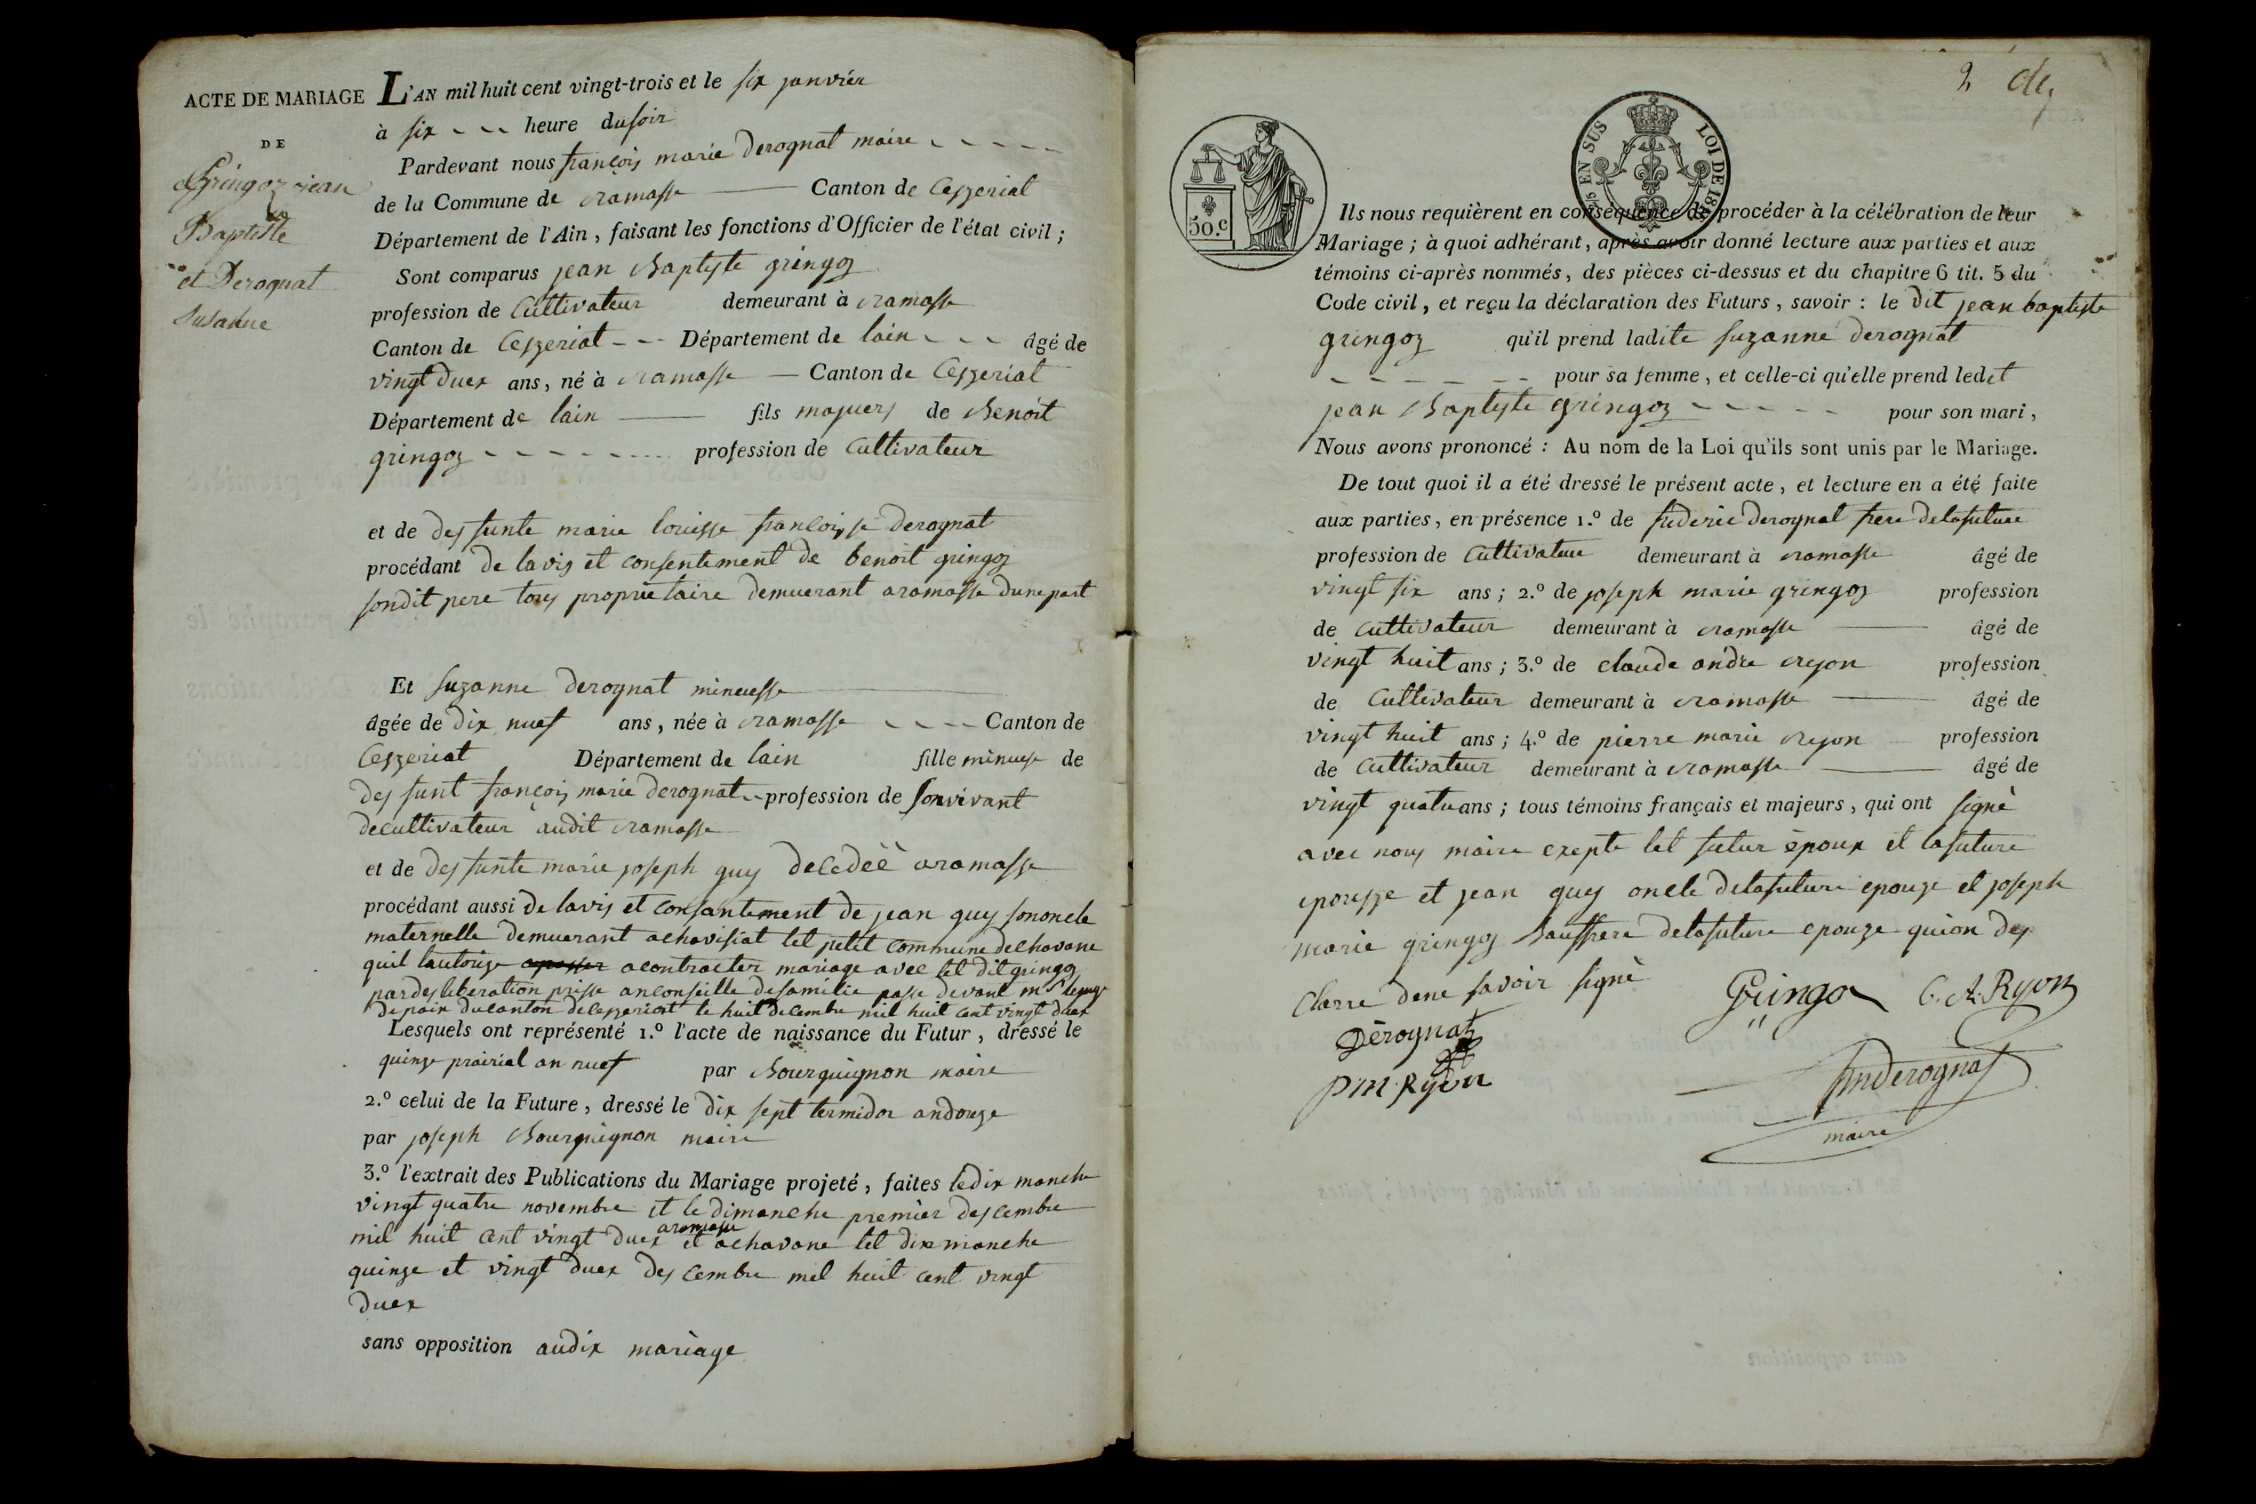 ACTE DE MARIAGE
DE
Gringoz jean
Baptiste
et Derognat
Susanne
L'AN mil huit cent vingt-trois et le six janvier
à six heure du soir
Pardevant nous françois marie Derognat maire
de la Commune de ramasse Canton de Ceszeriat
Département de l'Ain, faisant les fonctions d'Officier de l'état civil ;
Sont comparus jean Baptyste gringoz
profession de Cultivateur demeurant à ramasse
Canton de Ceszeriat Département de lain âgé de
vingt duex ans, né à ramasse Canton de Ceszeriat
Département de lain fils majuers de Benoit
gringoz profession de Cultivateur
et de desfunte marie louisse françoisse derognat
procédant de lavis et consentement de benoit gringoz
sondit pere tous proprietaire demuerant aramasse dunepart
Et suzanne derognat minuesse
âgée de dix nuef ans, née à ramasse Canton de
Ceszeriat Département de lain fille minues de
des funt françois marie derognat profession de sonvivant
decultivateur audit ramasse
et de des funte marie joseph guy decedéé aramasse
procédant aussi de lavis et consantement de jean guy sononcle
maternelle demuerant achavisiat lel petit commune dechavane
quil lautorize acontracter mariage avec lel dit gringoz
pardesliberation prisse anconseille defamilie passe devant mr lejuge
depaix ducanton deceszeriat le huit decembre mil huit cent vingt duex
Lesquels ont représenté 1.º l'acte de naissance du Futur, dressé le
quinze prairial an nuef par Bourguignon maire
2.º celui de la Future, dressé le dix sept termidor andouze
par joseph Bourguignon maire
3.º l'extrait des Publications du Mariage projeté, faites ledix manche
vingt quatre novembre et le dimanche premier descembre
mil huit cent vingt duex aramasse et achavane lel dixmanche
quinze et vingt duex des cembre mil huit cent vingt
duex
sans opposition audix mariage
2 de
50.c
25 EN SUS
LOI DE 18
Ils nous requièrent en conséquence de procéder à la célébration de leur
Mariage ; à quoi adhérant, après avoir donné lecture aux parties et aux
témoins ci-après nommés, des pièces ci-dessus et du chapitre 6 tit. 5 du
Code civil, et reçu la déclaration des Futurs, savoir : le dit jean baptiste
gringoz qu'il prend ladite suzanne derognat
pour sa femme, et celle-ci qu'elle prend ledit
jean Baptyste gringoz pour son mari,
Nous avons prononcé : Au nom de la Loi qu'ils sont unis par le Mariage.
De tout quoi il a été dressé le présent acte, et lecture en a été faite
aux parties, en présence 1.º de frederic derognat frere delafuture
profession de Cultivateur demeurant à ramasse âgé de
vingt six ans ; 2.º de joseph marie gringoz profession
de Cultivateur demeurant à ramasse âgé de
vingt huit ans ; 3.º de claude andre reyon profession
de Cultivateur demeurant à ramasse âgé de
vingt huit ans ; 4.º de pierre marie reyon profession
de Cultivateur demeurant à ramasse âgé de
vingt quatre ans ; tous témoins français et majeurs, qui ont signé
avec nous maire exepte lel futur époux et lafuture
epousze et jean guy oncle delafuture epouze et joseph
marie gringoz Bauffrere delafuture epouze quion des
clarre dene savoir signé
Gringoz C. A. Ryon
Dérognat
P M. Ryon
fm derognat
maire